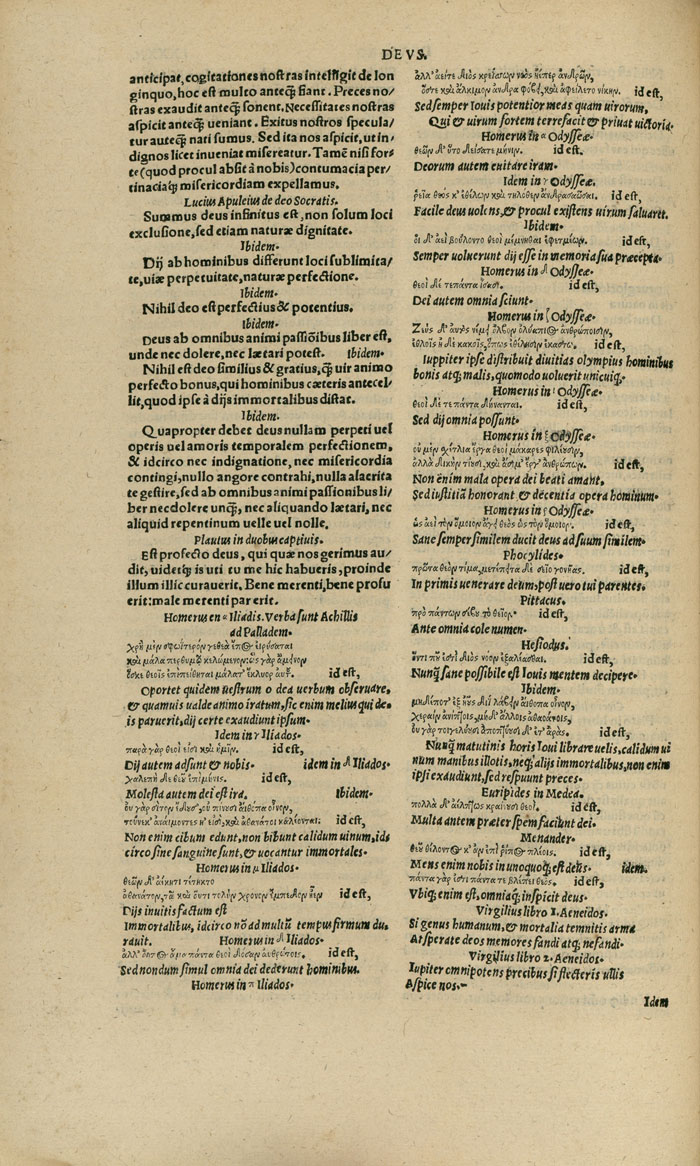 DEVS.
anticipat, cogitationes nostras intelligit de lon
ginquo, hoc est multo anteq̃ fiant. Preces no/
stras exaudit anteq̃ sonent. Necessitates nostras
aspicit anteq̃ ueniant. Exitus nostros specula/
tur auteq̃ nati sumus. Sed ita nos aspicit, ut in/
dignos licet inueniat misereatur. Tamẽ nisi for/
te (quod procul absit à nobis) contumacia per/
tinaciaq; misericordiam expellamus.
Lucius Apuleius de deo Socratis.
Summus deus infinitus est, non solum loci
exclusione, sed etiam naturæ dignitate.
Ibidem.
Dij ab hominibus differunt loci sublimita/
te, uiæ perpetuitate, naturæ perfectione.
Ibidem.
Nihil deo est perfectius & potentius.
Ibidem.
Deus ab omnibus animi passiõibus liber est,
unde nec dolere, nec lætari potest. Ibidem.
Nihil est deo similius & gratius, q̃ uir animo
perfecto bonus, qui hominibus cæteris antecel/
lit, quod ipse à dijs immortalibus distat.
Ibidem.
Quapropter debet deus nullam perpeti uel
operis uel amoris temporalem perfectionem,
& idcirco nec indignatione, nec misericordia
contingi, nullo angore contrahi, nulla alacrita
te gestire, sed ab omnibus animi passionibus li/
ber nec dolere unq̃, nec aliquando lætari, nec
aliquid repentinum uelle uel nolle.
Plautus in duobus captiuis.
Est profecto deus, qui quæ nos gerimus au/
dit, uidetq; is uti tu me hic habueris, proinde
illum illic curauerit. Bene merenti, bene profu
erit: male merenti par erit.
Homerus en α Iliadis. Verba sunt Achillis
ad Palladem.
χρὴ μὲν σφωΐτερόν γε θεὰ ἔπος εἰρύσασθαι
καὶ μάλα περ θυμῷ κεχολωμένον: ὣς γὰρ ἄμεινον
ὅς κε θεοῖς ἐπιπείθηται μάλα τ' ἔκλυον αὐτοῦ. id est,
Oportet quidem uestrum o dea uerbum obseruare,
& quamuis ualde animo iratum, sic enim melius qui de-
is paruerit, dij certe exaudiunt ipsum.
Idem in γ Iliados.
παρὰ γὰρ θεοί εἰσι καὶ ἡμῖν. id est,
Dij autem adsunt & nobis. idem in Iliados.
χαλεπὴ δὲ θεοῦ ἔπι μῆνις. id est,
Molesta autem dei est ira. Ibidem.
οὐ γὰρ σῖτον ἔδουσ', οὐ πίνουσ' αἴθοπα οἶνον,
τοὔνεκ' ἀναίμονές εἰσι, καὶ ἀθάνατοι καλέονται: id est,
Non enim cibum edunt, non bibunt calidum uinum, id
circo sine sanguine sunt, & uocantur immortales.
Homerus in μ Iliados.
θεῶν δ' ἀέκητι τέτυκτο
ἀθανάτων, τὸ καὶ οὔτι πολὺν χρόνον ἔμπεδον ἦεν id est,
Dijs inuitis factum est
Immortalibus, idcirco nõ ad multũ tempus firmum du.
rauit. Homerus in Iliados.
ἀλλ' οὔπως ἅμα πάντα θεοὶ δόσαν ἀνθρώποις. id est,
Sed nondum simul omnia dei dederunt hominibus.
Homerus in π Iliados.
ἀλλ' αἰεί τε Διὸς κρείσσων νόος ἠέπερ ἀνδρῶν,
ὅστε καὶ ἄλκιμον ἄνδρα φοβεῖ, καὶ ἀφείλετο νίκην. id est,
Sed semper Iouis potentior meas quam uirorum,
Qui & uirum fortem terrefacit & priuat uictoria.
Homerus in α Odysseæ.
id est.
Deorum autem euitare iram.
Idem in γ Odysseæ.
ῥεῖα θεός κ' ἐθέλων καὶ τηλόθεν ἄνδρα σαῶσαι. id est,
Facile deus uolens, & procul existens uirum saluaret.
Ibidem.
οἱ δ' αἰεὶ βούλοντο θεοὶ μεμνῆσθαι ἐφετμέων. id est,
Semper uoluerunt dij esse in memoria sua præcepta.
Homerus in Odysseæ.
θεοὶ δέ τε πάντα ἴσασι. id est.
Dei autem omnia sciunt.
Homerus in ζ Odysseæ.
Ζεὺς δ' αὐτὸς νέμει ὄλβον ὀλύμπιος ἀνθρώποισιν,
ἐσθλοῖς ἠδὲ κακοῖς, ὅπως ἐθέλῃσιν ἑκάστῳ. id est,
Iuppiter ipse distribuit diuitias olympius hominibus
bonis atq; malis, quomodo uoluerit unicuiq;.
Homerus in Odysseæ.
θεοὶ δέ τε πάντα δύνανται. id est,
Sed dij omnia possunt.
Homerus in ξ Odysseæ.
οὐ μὲν σχέτλια ἔργα θεοὶ μάκαρες φιλέουσιν,
ἀλλὰ δίκην τίουσι, καὶ αἴσιμα ἔργ' ἀνθρώπων. id est,
Non enim mala opera dei beati amant,
Sed iustitiã honorant & decentia opera hominum.
Homerus in ρ Odysseæ.
ὡς αἰεὶ τὸν ὅμοιον ἄγει θεὸς ὡς τὸν ὅμοιον. id est,
Sane semper similem ducit deus ad suum similem.
Phocylides.
πρῶτα θεὸν τίμα, μετέπειτα δὲ σεῖο γονῆας. id est,
In primis uenerare deum, post uero tui parentes.
Pittacus.
πρὸ πάντων σέβου τὸ θεῖον. id est,
Ante omnia cole numen.
Hesiodus.
οὔτι πῃ ἔστι Διὸς νόον ἐξαλέασθαι. id est,
Nunq̃ sane possibile est Iouis mentem decipere.
Ibidem.
μηδέποτ' ἐξ ἠοῦς Διῒ λείβειν αἴθοπα οἶνον,
χερσὶν ἀνίπτοις, μηδ' ἄλλοις ἀθανάτοις,
οὐ γὰρ τοίγε κλύουσι ἀποπτύουσι δέ τ' ἀράς. id est,
Nunq̃ matutinis horis Ioui librare uelis, calidum ui
num manibus illotis, neq; alijs immortalibus, non enim
ipsi exaudiunt, sed respuunt preces.
Euripides in Medea.
πολλὰ δ' ἀέλπτως κραίνουσι θεοί. id est,
Multa autem præter spem faciunt dei.
Menander.
id est,
Mens enim nobis in unoquoq; est deus. idem.
πάντα γὰρ ἐστι τε βλέπει θεός. id est,
Vbiq; enim est, omniaq; inspicit deus.
Virgilius libro 1. Aeneidos.
Si genus humanum, & mortalia temnitis arma
At sperate deos memores fandi atq; nefandi.
Virgilius libro 2. Aeneidos.
Iupiter omnipotens precibus si flecteris ullis
Aspice nos.
Idem